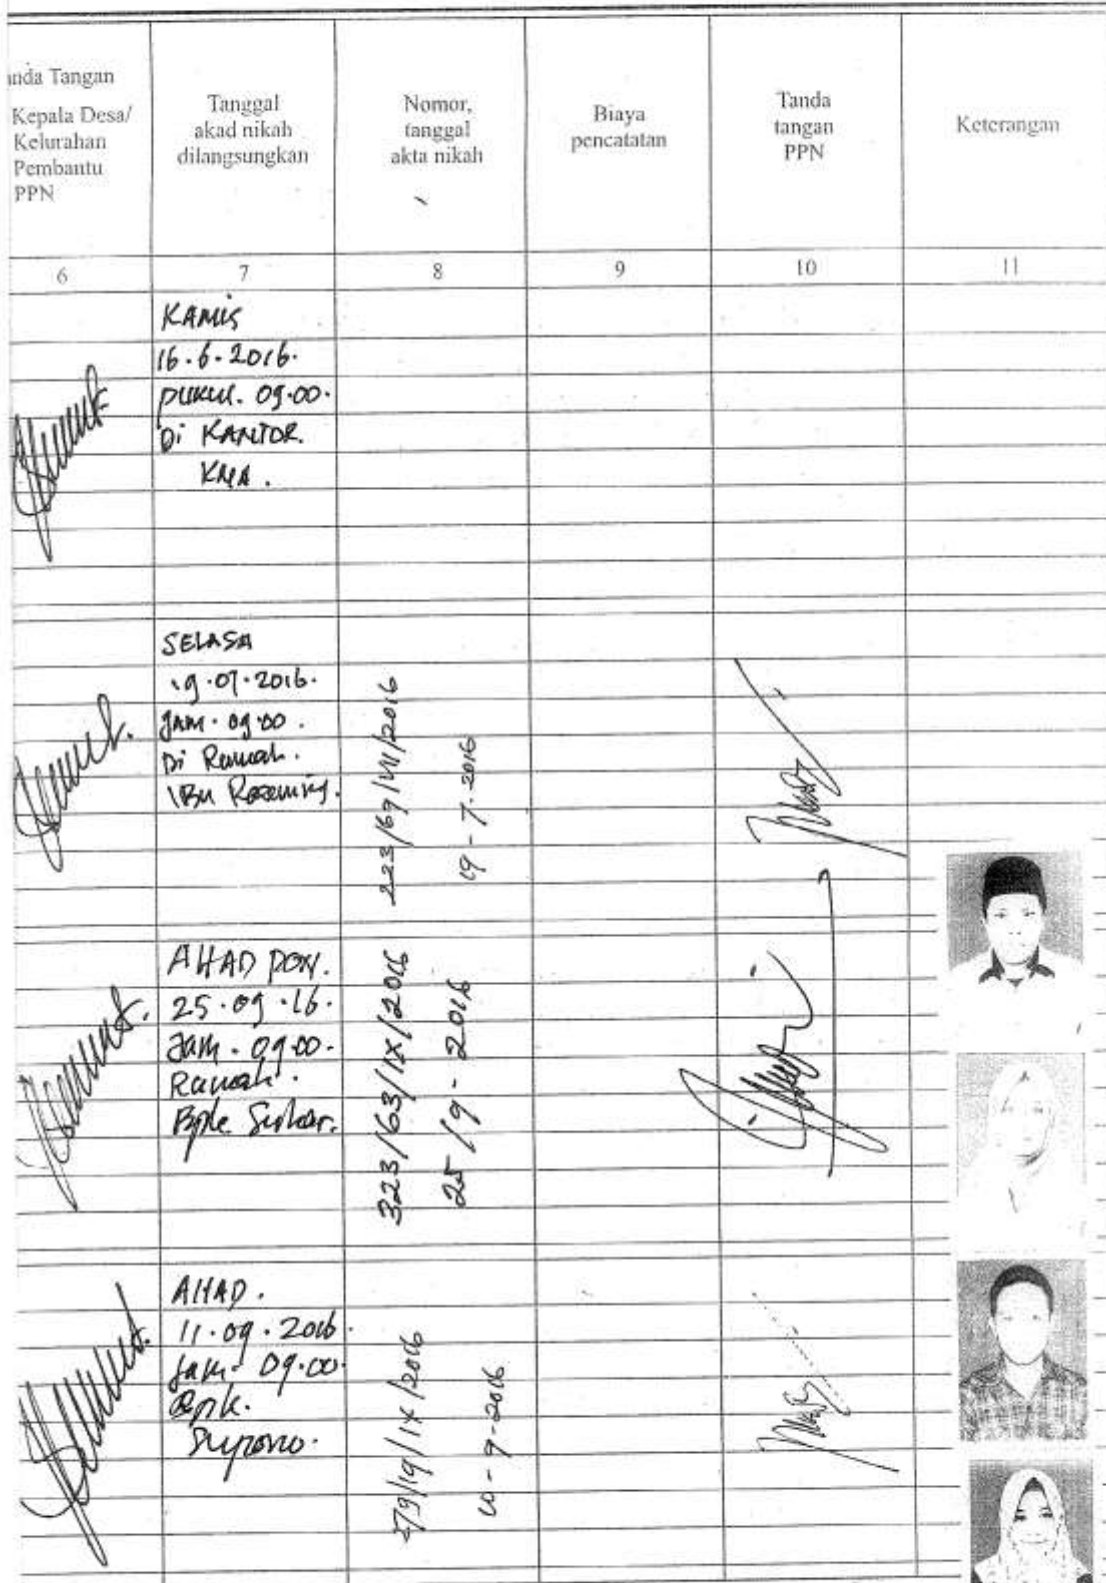 Tanda Tangan
Kepala Desa/
Kelurahan
Pembantu
PPN
Tanggal
akad nikah
dilangsungkan
Nomor,
tanggal
akta nikah
Biaya
pencatatan
Tanda
tangan
PPN
Keterangan
6
7
8
9
10
11
KAMIS
16.6.2016.
pukul. 09.00.
Di KANTOR.
KUA.
SELASA
19.07.2016.
JAM. 09.00.
Di Rumah.
IBu
223/69/VII/2016
19-7-2016
AHAD PON.
25.09.16.
Jam. 09.00.
Rumah.
Bpk.
323/63/IX/2016
25/9-2016
AHAD.
11.09.2016.
Jam. 09.00.
Bpk.
/19/IX/2016
-9-2016